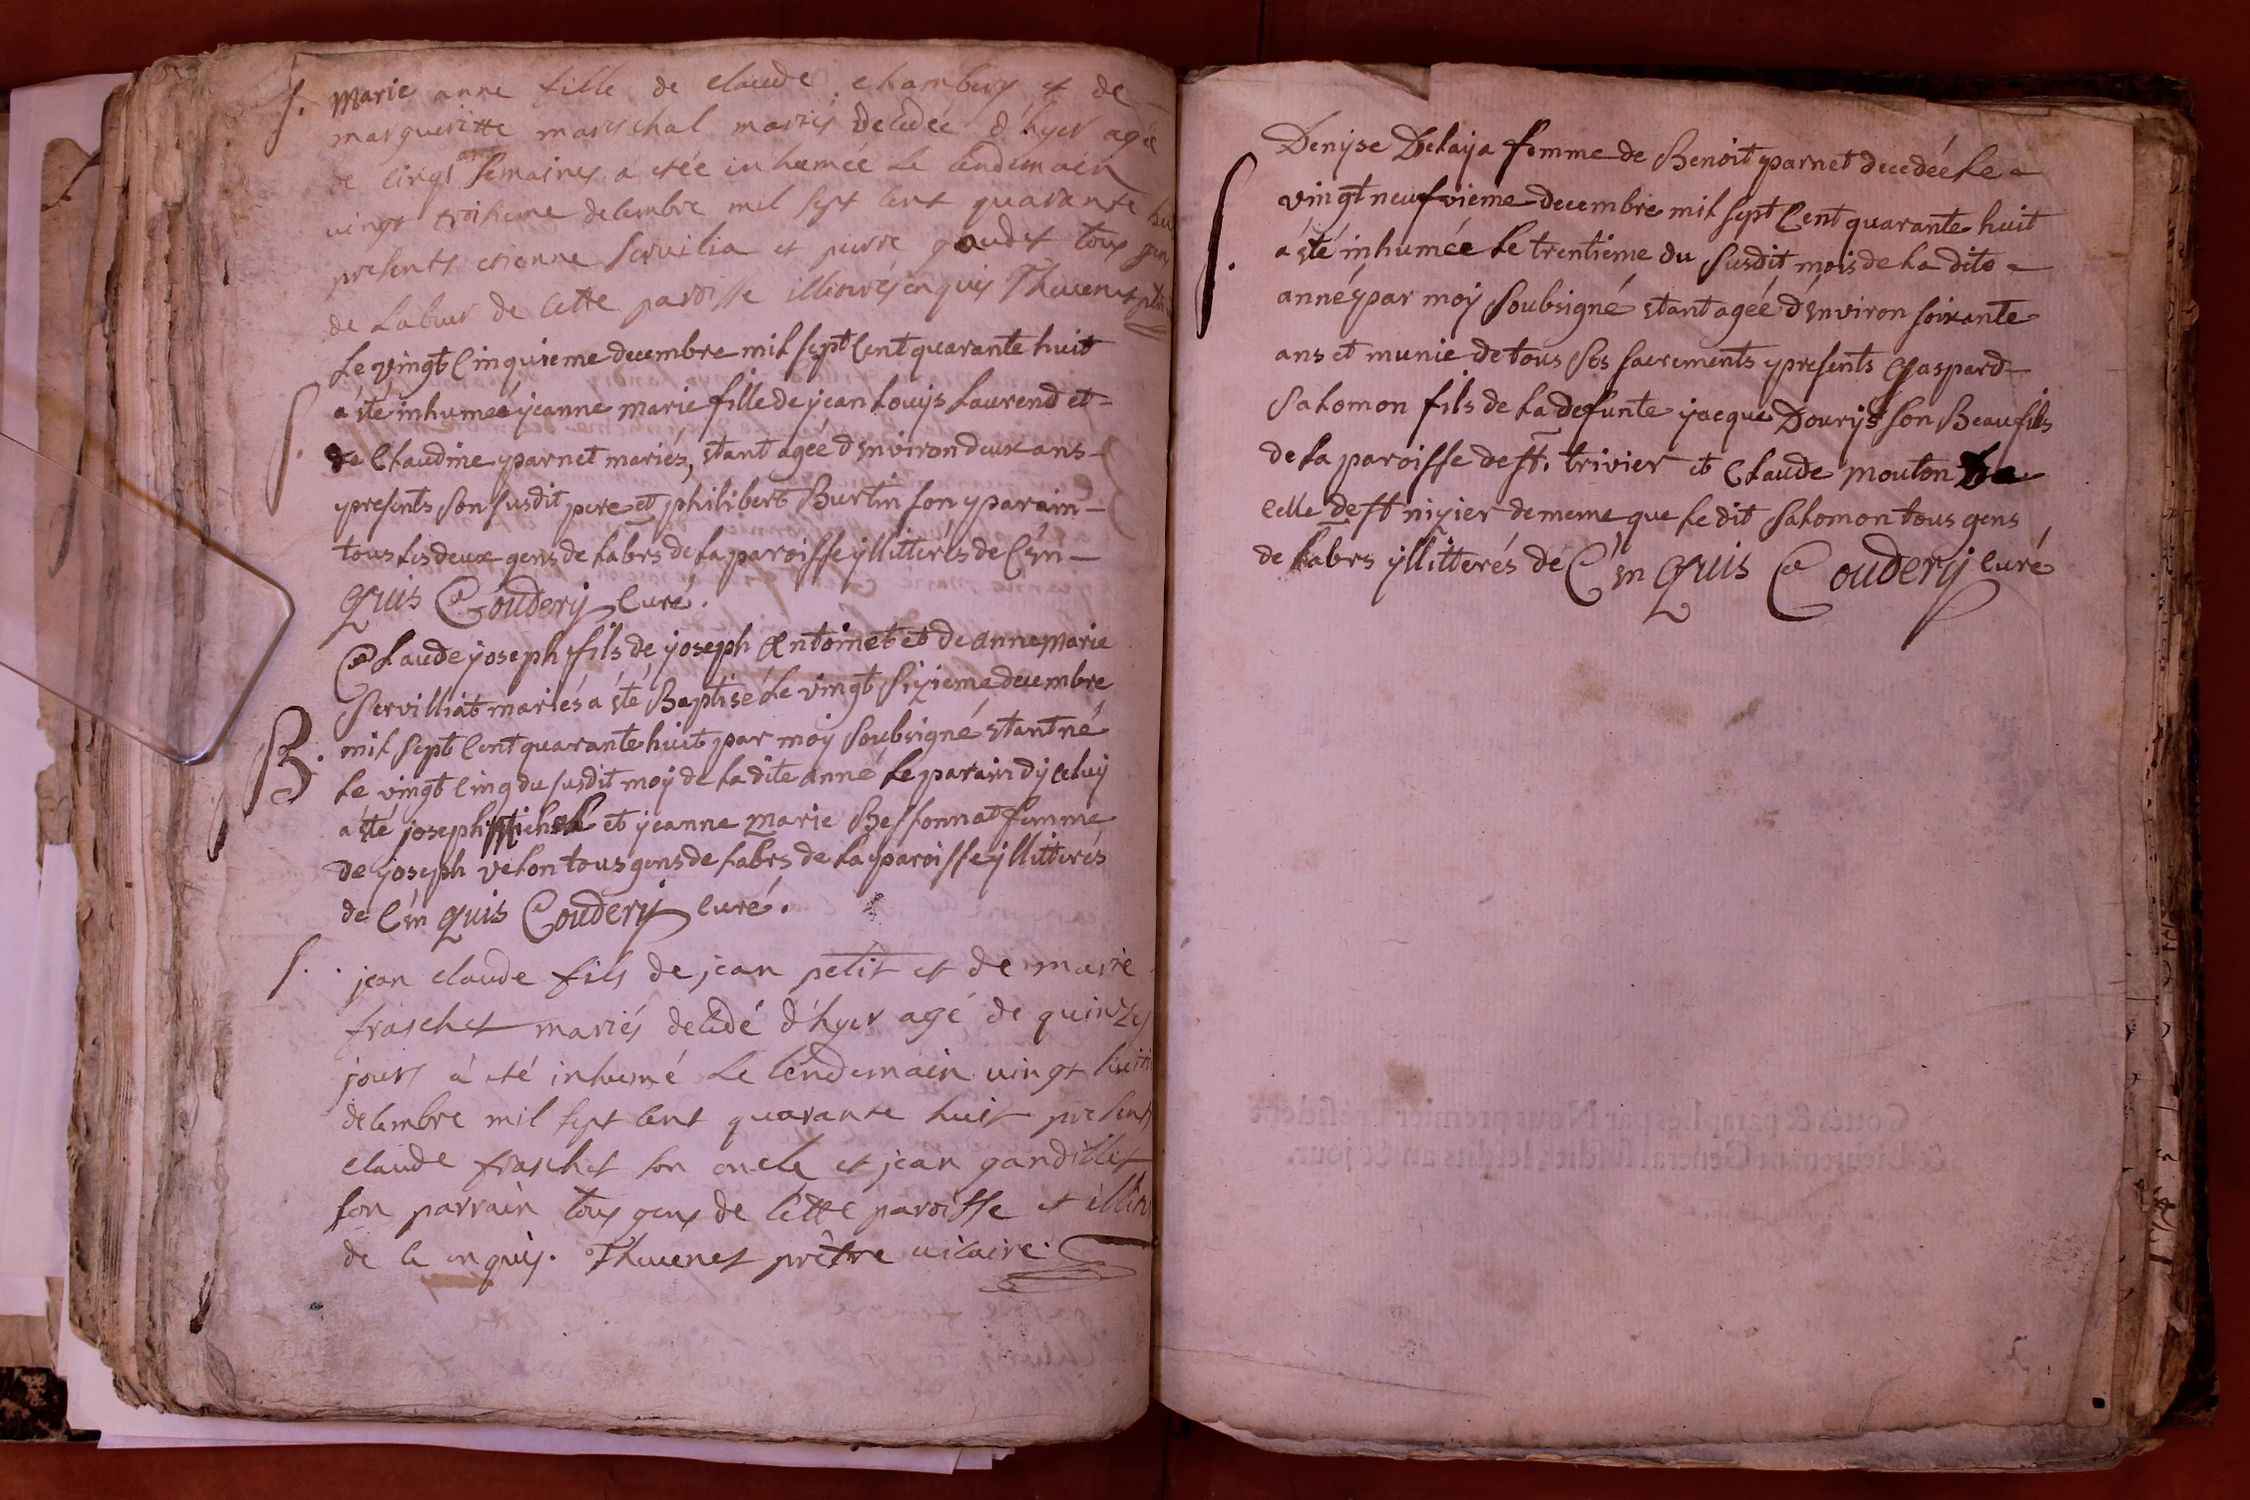 S. Marie anne fille de claude chambery et de
margueritte mareschal mariés decedée d'hyer agée
de cinq semaines a etée inhumée le lendemain
vingt troisieme decembre mil sept cent quarante huit
presents etienne servilia et pierre goudet tous gens
de labeur de cette paroisse illitirés enquis Thevenet ptre
Le vingt cinquieme decembre mil sept cent quarante huit
S. a été inhumeé jeanne marie fille de jean Louijs Laurend et
de Claudine parnet mariés, etant ageé d'environ deux ans
presents son susdit pere et philibert Burtin son parain
tous les deux gens de labrs de la paroisse yllitterés de C'en
quis Coudery Curé.
Claude joseph fils de joseph Antoinet et de anne Marie
Servilliat mariés a été Baptisé le vingt sixieme decembre
B. mil sept cent quarante huit par moy soubsigné, etant né
le vingt cinq du susdit moy de la dite anné le parain d'yceluy
a été joseph et jeanne marie Bessonnat femme
de joseph velon tous gens de labrs de la paroisse yllitterés
de C'en quis Coudery curé.
S. jean claude fils de jean petit et de marie
fraschet mariés decedé d'hyer agé de quinze
jours à eté inhumé le lendemain vingt huit
decembre mil sept cent quarante huit presents
claude fraschet son oncle et jean gandillet
son parrain tous gens de cette paroisse et
de ce enquis. Thevenet prêtre vicaire.
Denyse Delaya femme de Benoit parnet decedée le
vingt neufvieme decembre mil sept cent quarante huit
S. a été inhumée le trentieme du susdit mois de la dite
anné par moy soubsigné etant ageé d'environ soixante
ans et munie de tous ses sacrements presents gaspard
Salomon fils de la defunte jacque Dourys son Beaufils
de la paroisse de st. trivier et Claude mouton de
celle de st nizier de meme que le dit Salomon tous gens
de labrs yllitterés de C'en quis Coudery curé